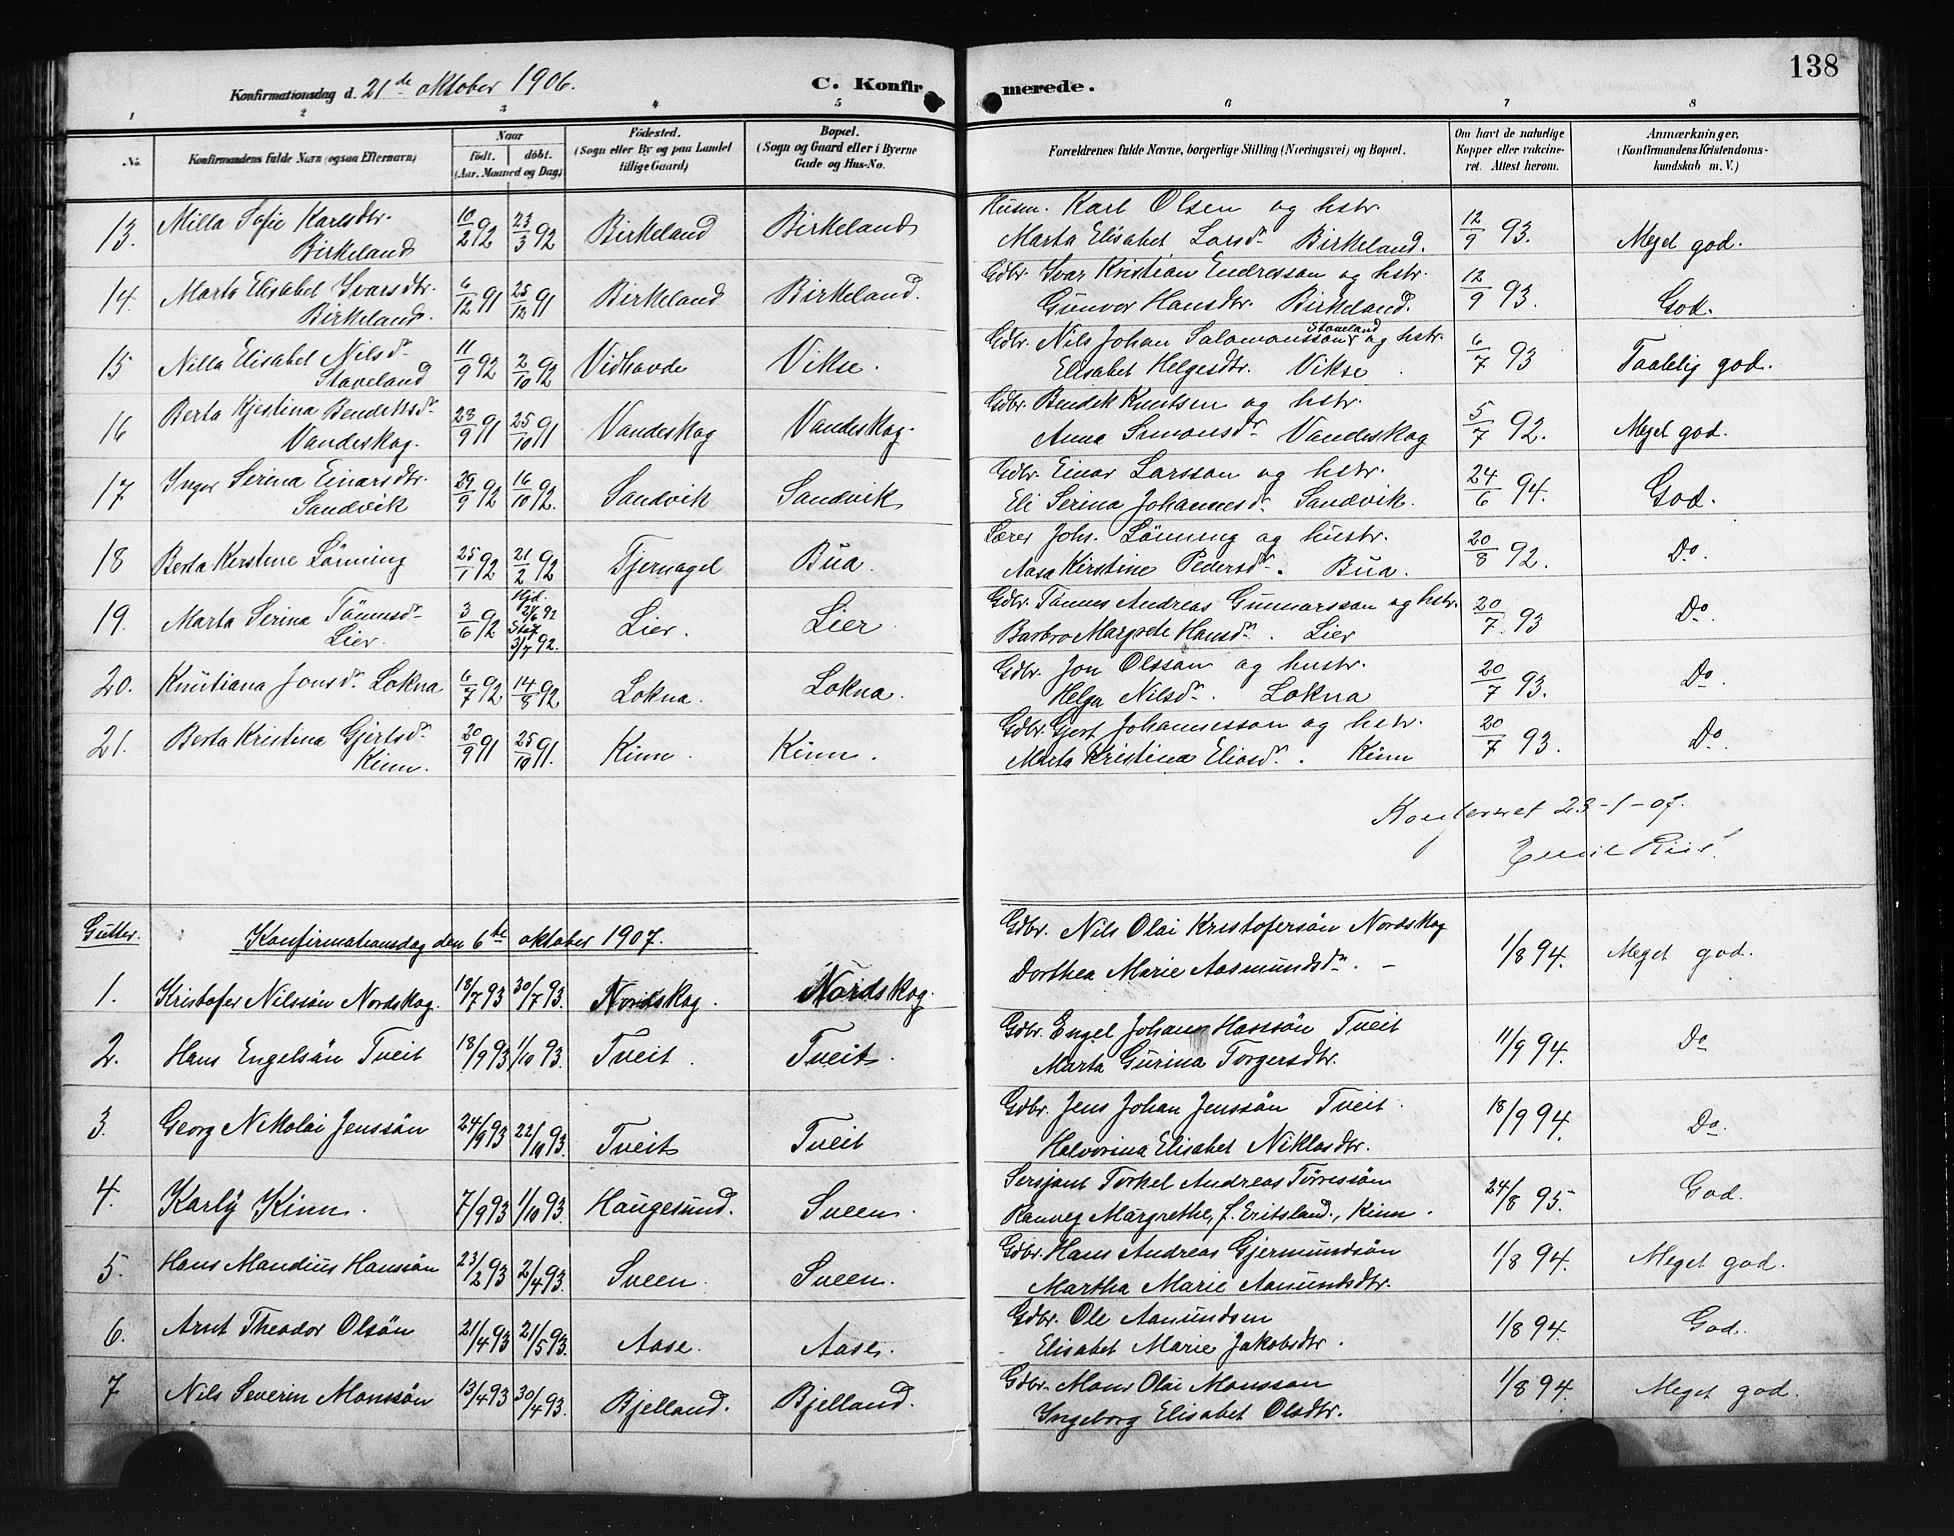 138
Konfirmationsdag d. 21de oktober 1906. C. Konfirmerede.
1 2 3 4 5 6 7 8
No. Konfirmandens fulde Navn (ogsaa Efternavn) Naar födt. döbt. (Aar, Maaned og Dag) Födested. (Sogn eller By og paa Landet tillige Gaard) Bopæl. (Sogn og Gaard eller i Byerne Gade og Hus-No. Forældrenes fulde Navne, borgerlige Stilling (Næringsvei) og Bopæl. Om havt de naturlige Kopper eller vakcineret. Attest herom. Anmærkninger, (Konfirmandens Kristendomskundskab m. V.)
13. Milla Sofie Karlsdtr. Birkeland 10/2 92 23/3 92 Birkeland Birkeland Husm. Karl Olsen og hstr. Marta Elisabet Larsdr Birkeland. 12/9 93. Meget god.
14. Marta Elisabet Ivarsdtr. Birkeland. 6/12 91 25/12 91 Birkeland Birkeland. Gdbr. Ivar Kristian Endresson og hstr. Gunvor Hansdtr. Birkeland. 12/9 93. God.
15 Nilla Elisabet Nilsdr Staveland 11/9 92 2/10 92 Vikse. Gdbr. Nils Johan Salomonsson Staveland og hstr. Elisabet Helgesdtr. Vikse. 6/7 93 Taalelig god.
16 Berta Kjestina Bendiksdr Vandeskog. 28/9 91 25/10 91 Vandeskog Vandeskog. Gdbr. Bendik Knutsen og hstr. Anna Simonsdr Vandeskog 5/7 92. Meget god.
17 Inger Serina Einarsdtr. Sandvik 29/9 92 16/10 92. Sandvik Sandvik Gdbr. Einar Larsson og hstr. Eli Serina Johannesdr Sandvik. 24/6 94. God.
18 Berta Kerstine Lønning 25/1 92 21/2 92 Tjernagel Bua. Lærer Johs. Lønning og hustr. Aasa Kirstine Pedersdr. Bua. 20/8 92. Do.
19. Marta Serina Tønnesdr Lier. 3/6 92 Hjd. 27/6 92 Stad. 3/7 92. Lier. Lier Gdbr. Tønnes Andreas Gunnarsson og hstr. Barbro Margrete Hansdr. Lier 20/7 93 Do.
20. Knutiana Jonsdr Lokna 6/7 92. 14/8 92 Lokna. Lokna. Gdbr. Jon Olsson og hustr. Helga Nilsdr. Lokna 20/7 93. Do.
21. Berta Kristina Gjertsdr Kinn. 20/9 91 25/10 91. Kinn. Kinn. Gdbr. Gjert Johannesson og hstr. Marta Kristina Eliasdr. Kinn 20/7 93. Do.
Konfereret 23-1-07.
Emil Riis.
Gutter. Konfirmationsdag den 6te oktober 1907.
1. Kristofer Nilssøn Nordskog. 18/7 93 30/7 93. Nordskog. Nordskog. Gdbr. Nils Olai Kristofersøn Nordskog Dorthea Marie Aasmundsdr. – 1/8 94. Meget god.
2. Hans Engelsøn Tveit 18/9 93 1/10 93. Tveit. Tveit. Gdbr. Engel Johan Hanssøn Tveit Marta Gurina Torgersdtr. 11/9 94. Do
3. Georg Nikolai Jenssøn 24/9 93 22/10 93. Tveit Tveit Gdbr. Jens Johan Jenssøn Tveit. Halvorina Elisabet Niklasdtr. 18/9 94. Do.
4. Karly Kinn. 7/9 93 1/10 93. Haugesund. Sveen. Sersjant Torkel Andreas Tørressøn Ranveg Margrethe, f. Eritsland., Kinn. 24/8 95. God.
5. Hans Mandius Hanssøn 23/2 93 2/4 93. Sveen. Sveen. Gdbr. Hans Andreas Gjermundsøn Martha Marie Aamundsdtr. 1/8 94. Meget god.
6. Arnt Theodor Olsøn 21/4 93 21/5 93. Aase. Aase. Gdbr. Ole Aamundsen Elisabet Marie Jakobsdtr. 1/8 94. God.
7 Nils Severin Monssøn 13/4 93 30/4 93. Bjelland. Bjelland. Gdbr. Mons Olai Monsson Ingeborg Elisabet Olsdtr. 1/8 94. Meget god.